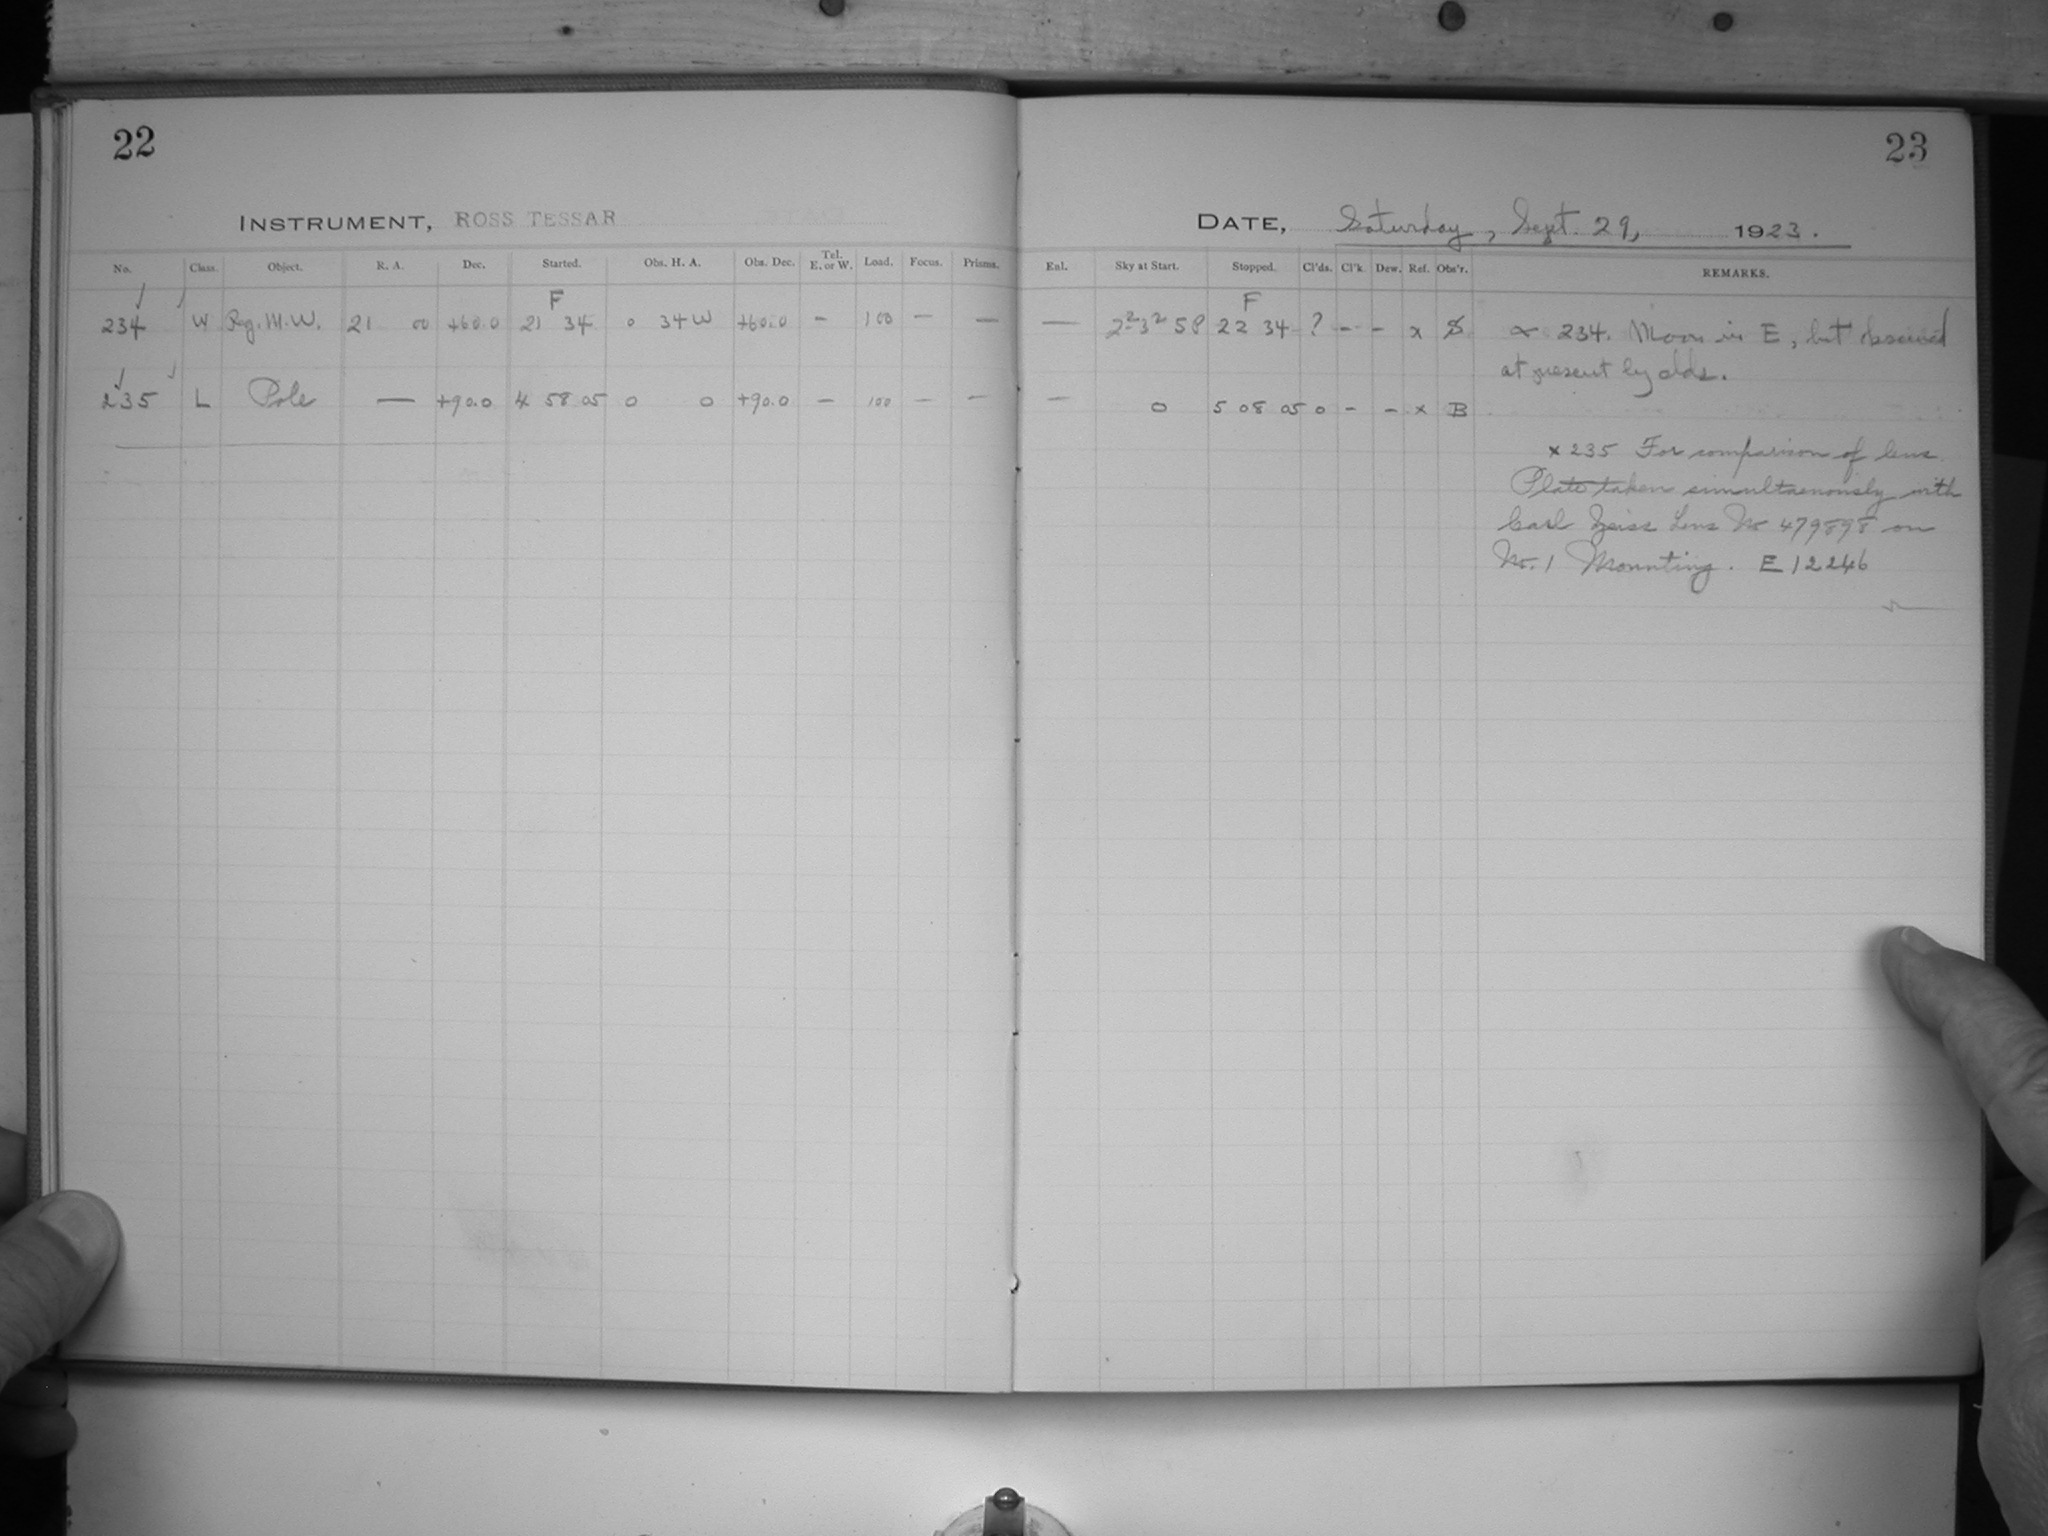 22
23
INSTRUMENT, ROSS TESSAR
DATE, Saturday, Sept. 29, 1923.
No. Class. Object. R. A. Dec. Started. Obs. H. A. Obs. Dec. Tel. E. or W. Load. Focus. Prisms. Enl. Sky at Start. Stopped. Cl'ds. Cl'k Dew. Ref. Obs'r. REMARKS.
F F
234 W Reg. M.W. 21 00 +60.0 21 34 0 34 W +60.0 – 100 – — — 22 34 ? – – x
234. Moon in E, but obscured
at present by clds.
235 L Pole — +90.0 4 58 05 0 0 +90.0 – 100 – – — 0 5 08 05 0 – – x B
x 235 For comparison of lens.
Plate taken simultaenously with
Carl Zeiss Lens No 479898 on
No. 1 Mounting. E 12246